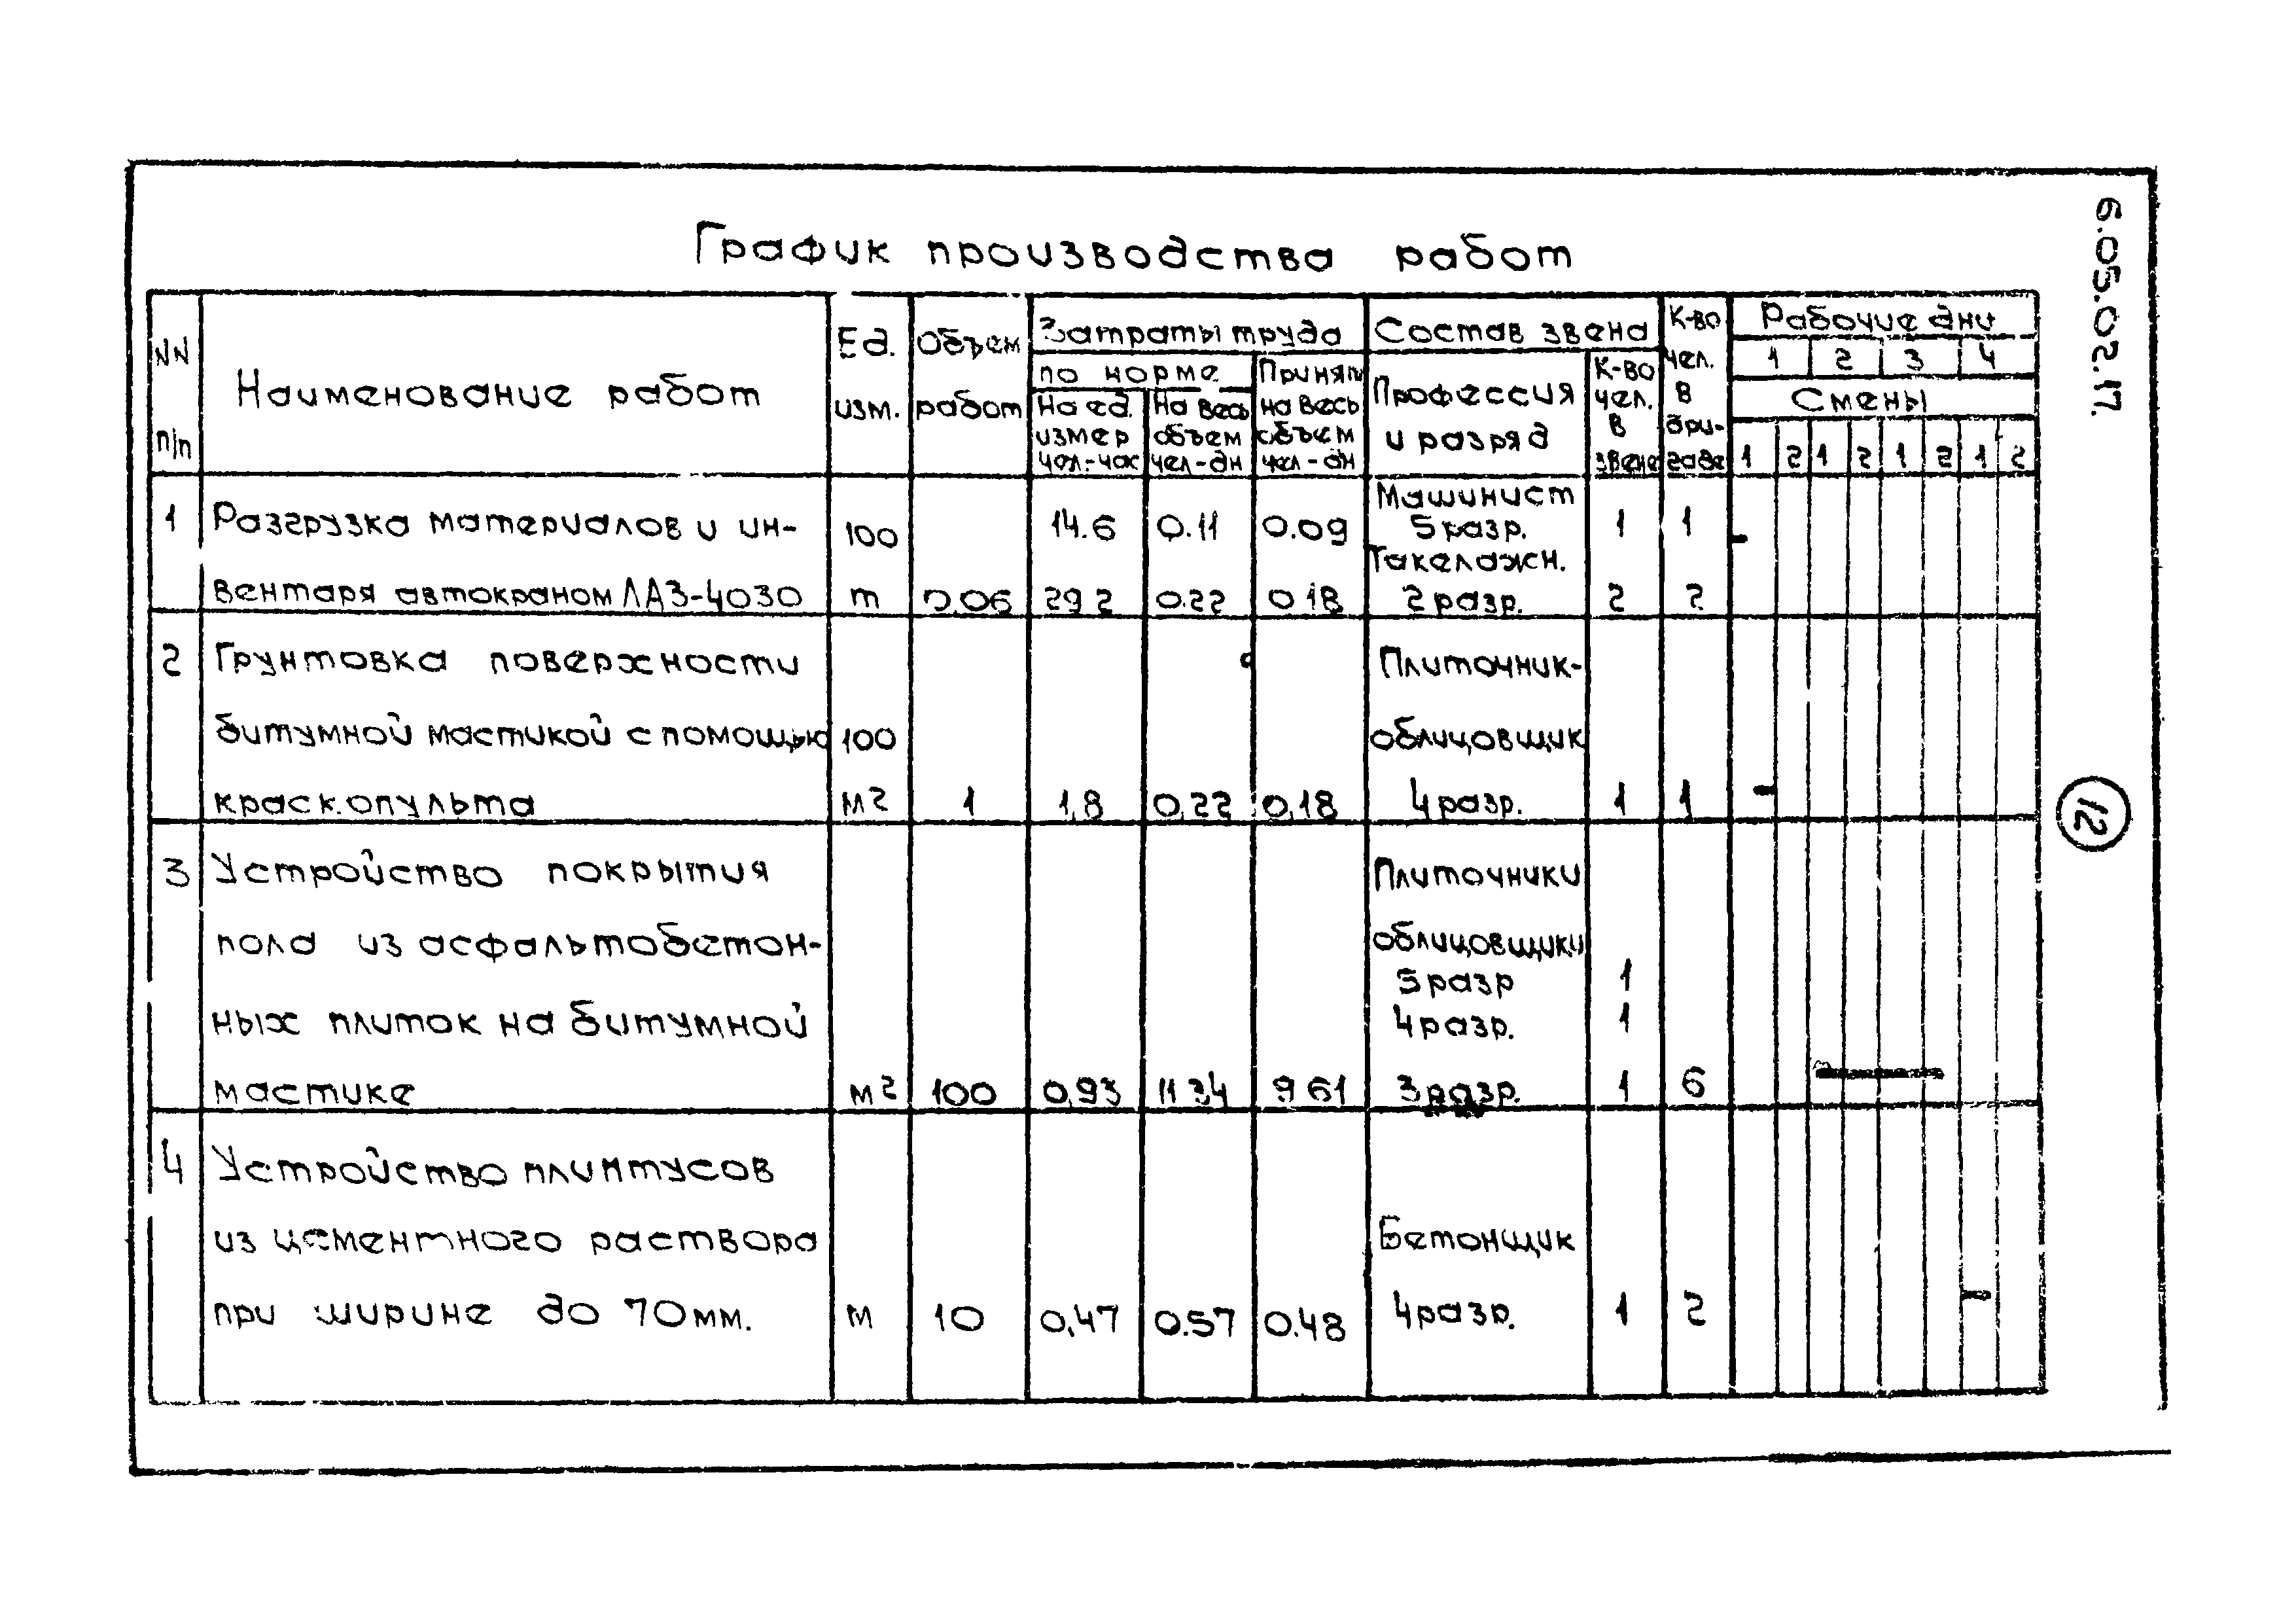 6.05.02.17.
График производства работ
NN п/п
Наименование работ
Ед. изм.
Объем работ
Затраты труда
по норме
На ед. измер чел.-час
На весь объем чел-дн
Принят на весь объем чел-дн
Состав звена
Профессия и разряд
К-во чел. в звене
К-во чел. в бригаде
Рабочие дни
1 2 3 4
Смены
1 2 1 2 1 2 1 2
1 Разгрузка материалов и ин- 100 14.6 0.11 0.09 Машинист 5 разр. 1 1
вентаря автокраном ЛАЗ-4030 т 0.06 29 2 0.22 0 18 Такелажн. 2 разр. 2 2
2 Грунтовка поверхности Плиточник-
битумной мастикой с помощью 100 облицовщик
краскопульта м2 1 1,8 0,22 0,18 4 разр. 1 1
3 Устройство покрытия Плиточники
пола из асфальтобетон- облицовщики
5 разр 1
ных плиток на битумной 4 разр. 1
мастике м2 100 0,93 11 34 9 61 3 разр. 1 6
4 Устройство плинтусов
из цементного раствора Бетонщик
при ширине до 70мм. м 10 0,47 0.57 0.48 4 разр. 1 2
12